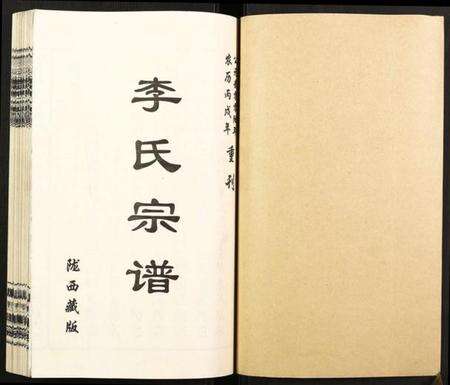 农历丙戌年 重刊
李氏宗谱
陇西藏版